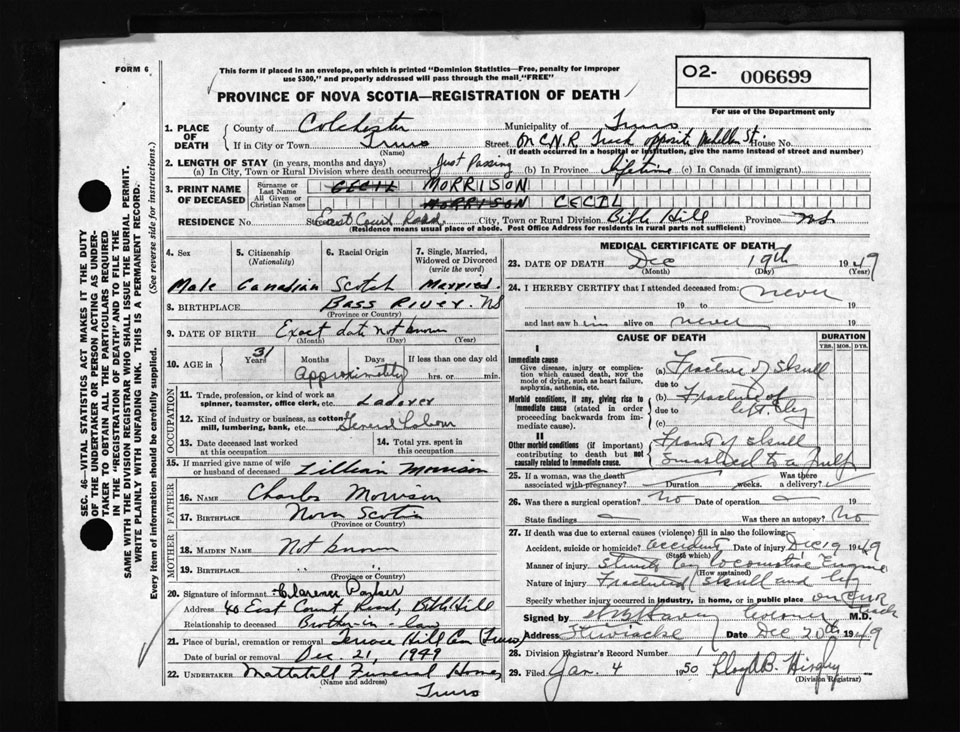 FORM 6
This form if placed in an envelope, on which is printed "Dominion Statistics—Free, penalty for improper
use $300," and properly addressed will pass through the mail "FREE"
O2- 006699
PROVINCE OF NOVA SCOTIA—REGISTRATION OF DEATH
For use of the Department only
1. PLACE OF DEATH
County of Colchester
Municipality of Truro
If in City or Town Truro
(Name)
Street On C.N.R. Track opposite St. House No.
(If death occurred in a hospital or institution, give the name instead of street and number)
2. LENGTH OF STAY (in years, months and days)
(a) In City, Town or Rural Division where death occurred Just Passing (b) In Province lifetime (c) In Canada (if immigrant)
3. PRINT NAME OF DECEASED
Surname or Last Name CECIL MORRISON
All Given or Christian Names MORRISON CECIL
RESIDENCE No. St. East Court Road City, Town or Rural Division Bible Hill Province NS
(Residence means usual place of abode. Post Office Address for residents in rural parts not sufficient)
4. Sex
Male
5. Citizenship
(Nationality)
Canadian
6. Racial Origin
Scotch
7. Single, Married,
Widowed or Divorced
(write the word)
Married.
8. BIRTHPLACE Bass River. NS
(Province or Country)
9. DATE OF BIRTH Exact date not known
(Month) (Day) (Year)
10. AGE in 31 Years Months Days If less than one day old
Approximatly hrs. or min.
OCCUPATION
11. Trade, profession, or kind of work as
spinner, teamster, office clerk, etc. Laborer
12. Kind of industry or business, as cotton
mill, lumbering, bank, etc. General Labour
13. Date deceased last worked
at this occupation
14. Total yrs. spent in
this occupation
15. If married give name of wife
or husband of deceased Lillian Morrison
FATHER
16. NAME Charles Morrison
17. BIRTHPLACE Nova Scotia
(Province or Country)
MOTHER
18. MAIDEN NAME Not known
19. BIRTHPLACE " "
(Province or Country)
20. Signature of informant Clarence
Address 40 East Court Road, Bible Hill
Relationship to deceased Brother-in-law
21. Place of burial, cremation or removal Terrace Hill Cem (Truro)
Date of burial or removal Dec. 21, 1949
22. UNDERTAKER Mattatall Funeral Home,
(Name and address)
Truro
MEDICAL CERTIFICATE OF DEATH
23. DATE OF DEATH Dec 19th 1949
(Month) (Day) (Year)
24. I HEREBY CERTIFY that I attended deceased from: never
19 to 19
and last saw him alive on never 19
CAUSE OF DEATH
DURATION
YRS. MOS. DYS.
I
Immediate cause
Give disease, injury or complica-
tion which caused death, not the
mode of dying, such as heart failure,
asphyxia, asthenia, etc.
(a) Fracture of Skull
due to
Morbid conditions, if any, giving rise to
Immediate cause (stated in order
proceeding backwards from im-
mediate cause).
(b) Fracture of
due to left leg
(c)
II
Other morbid conditions (if important)
contributing to death but not
causally related to immediate cause.
Front of Skull
smashed to a pulp
25. If a woman, was the death
associated with pregnancy? Duration weeks. Was there
a delivery?
26. Was there a surgical operation? No Date of operation 19
State findings Was there an autopsy? No
27. If death was due to external causes (violence) fill in also the following:
Accident, suicide or homicide? accident Date of injury Dec 19 1949
(State which)
Manner of injury Struck by locomotive Engine
(How sustained)
Nature of injury Fractured Skull and leg
Specify whether injury occurred in industry, in home, or in public place on CNR track
Signed by coroner M.D.
Address Stewiacke Date Dec 20th 1949
28. Division Registrar's Record Number 1
29. Filed Jan. 4 1950 Lloyd B.
(Division Registrar)
SEC. 46—VITAL STATISTICS ACT MAKES IT THE DUTY
OF THE UNDERTAKER OR PERSON ACTING AS UNDER-
TAKER TO OBTAIN ALL THE PARTICULARS REQUIRED
IN THE "REGISTRATION OF DEATH" AND TO FILE THE
SAME WITH THE DIVISION REGISTRAR WHO SHALL ISSUE THE BURIAL PERMIT.
WRITE PLAINLY WITH UNFADING INK. THIS IS A PERMANENT RECORD.
Every item of information should be carefully supplied. (See reverse side for instructions.)